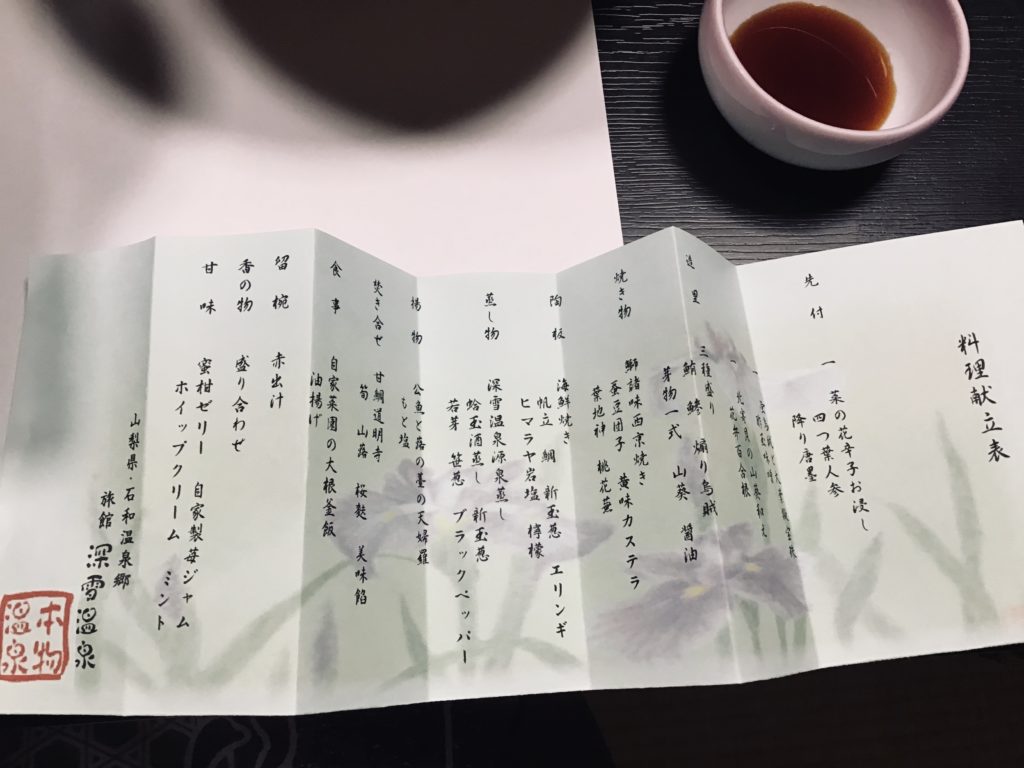 料理献立表
先付 一 菜の花辛子お浸し
四つ葉人参
降り唐墨
一
一 北寄貝の山葵和え
一 花弁百合根
造里 三種盛り
鮪 鰺 煽り烏賊
芽物一式 山葵 醤油
焼き物 鰤諸味西京焼き
蚕豆団子 黄味カステラ
葉地神 桃花蕪
陶板 海鮮焼き
帆立 鯛 新玉葱 エリンギ
ヒマラヤ岩塩 檸檬
蒸し物 深雪温泉源泉蒸し
蛤玉酒蒸し 新玉葱
若芽 笹葱 ブラックペッパー
揚物 公魚と蕗の薹の天婦羅
もと塩
焚き合せ 甘鯛道明寺
筍 山蕗 桜麩 美味餡
食事 自家菜園の大根釜飯
油揚げ
留椀 赤出汁
香の物 盛り合わせ
甘味 蜜柑ゼリー 自家製苺ジャム
ホイップクリーム ミント
山梨県・石和温泉郷
旅館 深雪温泉
本物
温泉